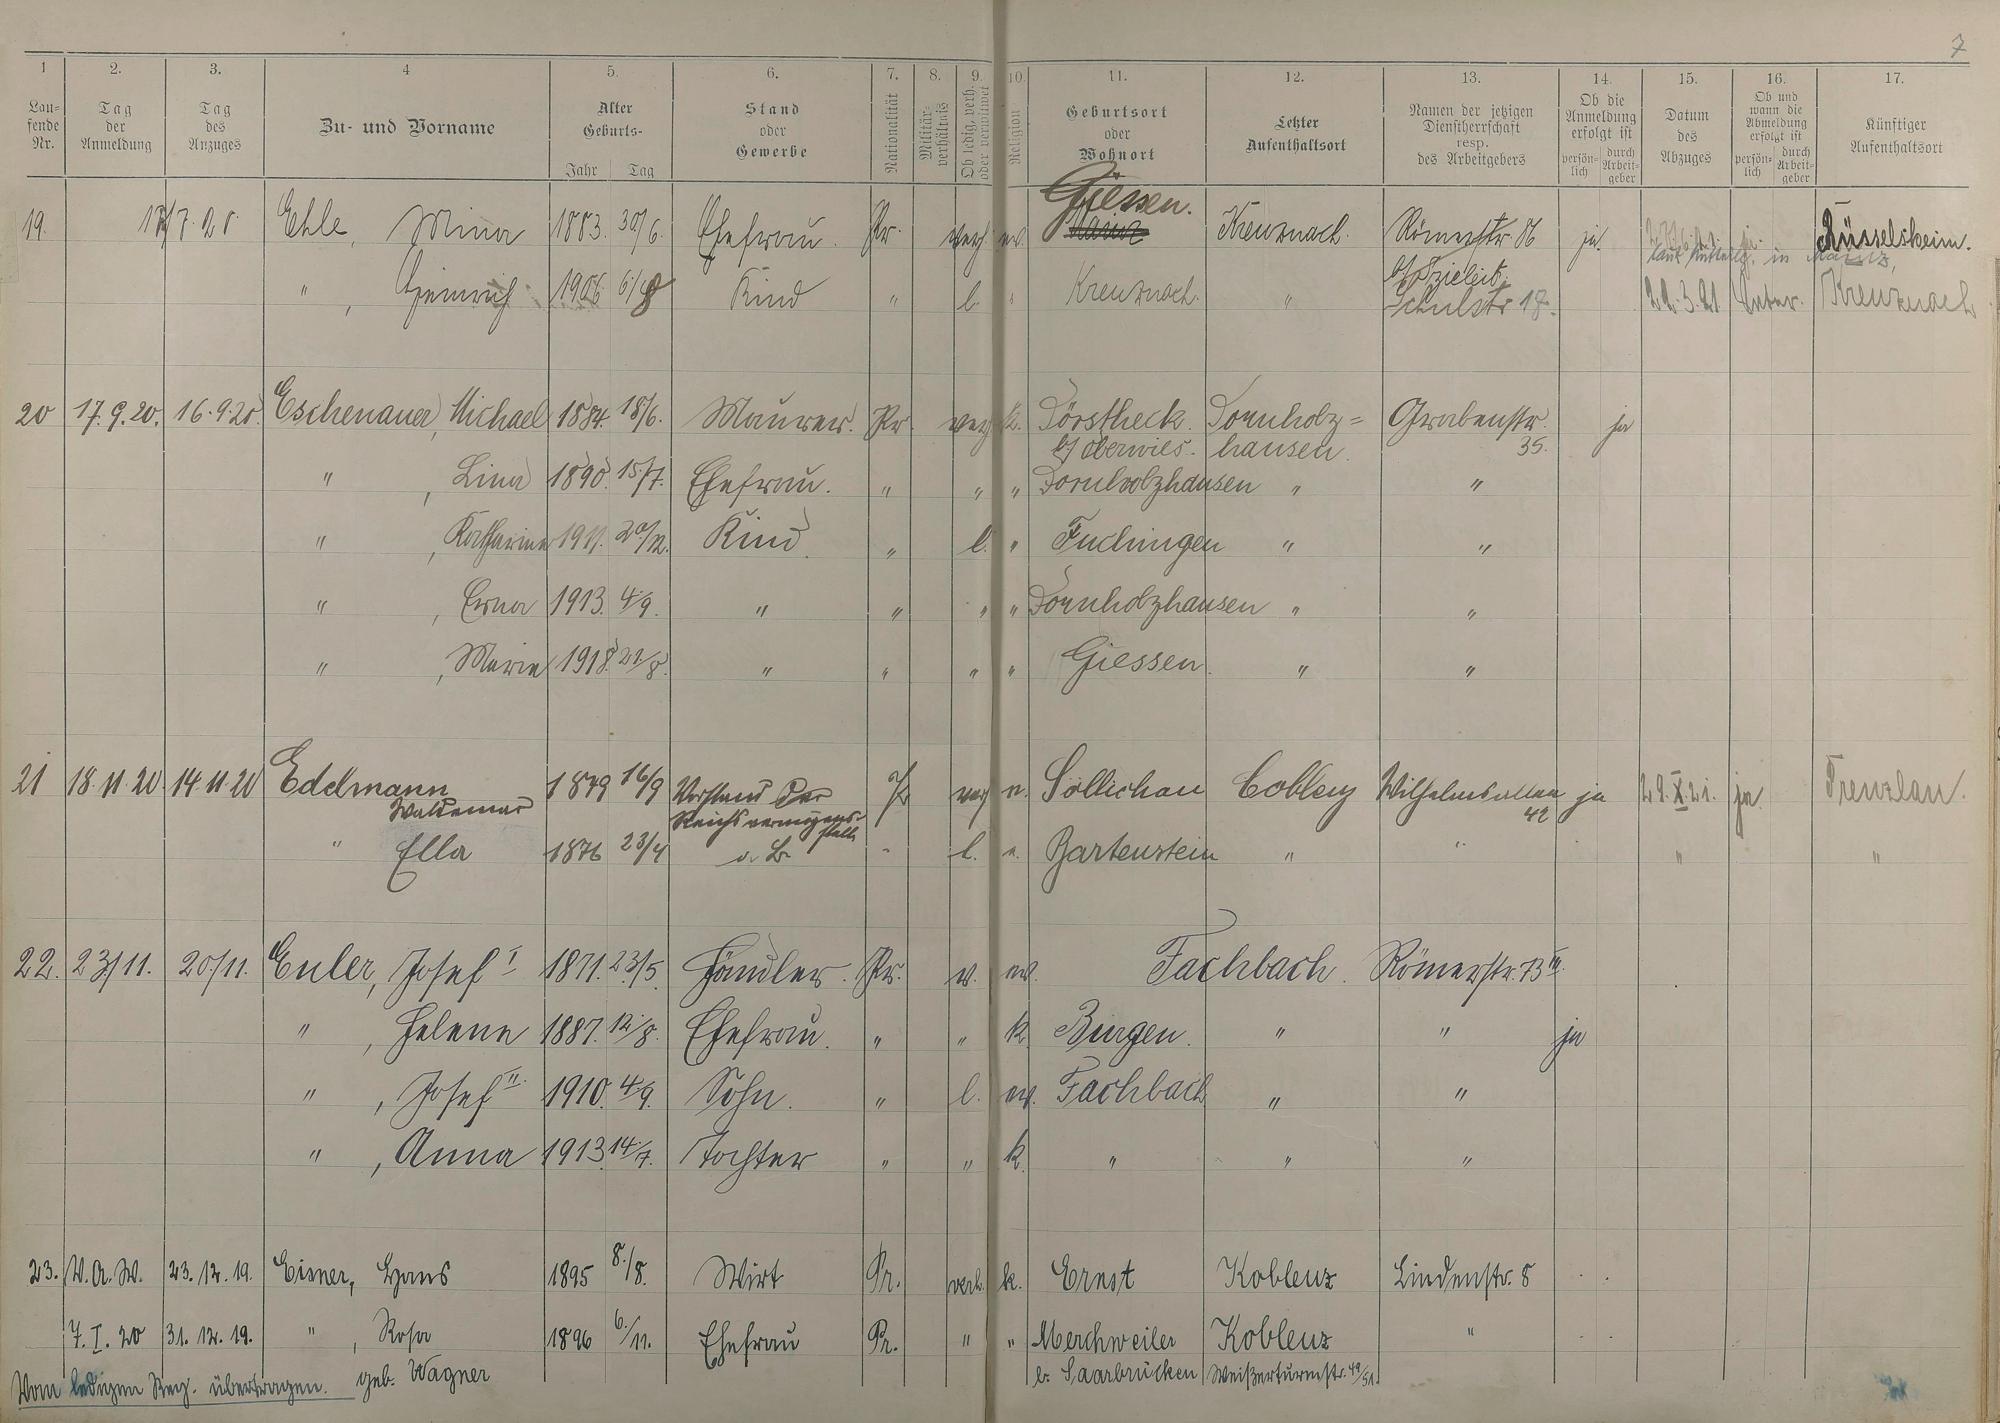 7
1 2. 3. 4 5. 6. 7. 8. 9. 10. 11. 12. 13. 14. 15. 16. 17.
Lau-
fende
Nr.
Tag
der
Anmeldung
Tag
des
Anzuges
Zu- und Vorname
Alter
Geburts-
Jahr Tag
Stand
oder
Gewerbe
Nationalität
Militär-
verhältnis
Ob ledig, verh.
oder verwitwet
Religion
Geburtsort
oder
Wohnort
Letzter
Aufenthaltsort
Namen der jetzigen
Dienstherrschaft
resp.
des Arbeitgebers
Ob die
Anmeldung
erfolgt ist
persön-
lich
durch
Arbeit-
geber
Datum
des
Abzuges
Ob und
wann die
Abmeldung
erfolgt ist
persön-
lich
durch
Arbeit-
geber
Künftiger
Aufenthaltsort
Giessen.
19. Ehle, Mina 1883. 30/6. Ehefrau. Pr. verh. ev. Kreuznach. Römerstr. 86 ja. Rüsselsheim.
in Mainz,
" , Heinrich 1906 6/8 Kind " l. " Kreuznach. " Schulstr 18. 22.3.21 Kreuznach
20 17.9.20. 16.9.20. Eschenauer, Michael 1884. 18/6. Maurer. Pr. verh k. Dörstheck Dornholz= Grabenstr. ja
b/ Oberwies. hausen. 35.
" , Lina 1890. 15/7. Ehefrau. " " " Dornholzhausen " "
" , Katharina 1911. 20/12. Kind. " l. " Fachingen " "
" , Erna 1913. 4/9. " " " " Dornholzhausen " "
" , Maria 1918. 21/8. " " " " Giessen. " "
21 18.11.20 14.11.20 Edelmann 1879 16/9 Vorstand der Pr verh e. Söllichau Coblenz Wilhelmsallee ja 29.X.21. ja Prenzlau.
Waldemar Reichsvermögens- 42
stelle
" Ella 1876 23/4 o. B. " l. e. Bartenstein " " " "
22. 23/11. 20/11. Euler, Josef I 1871. 23/5. Händler. Pr. v. ev. Fachbach. Römerstr. 73 III.
" , Helene 1887. 12/8. Ehefrau. " " k. Burgen. " " ja
" , Josef II. 1910. 4/9. Sohn. " l. ev. Fachbach " "
" , Anna 1913. 14/7. Tochter " " k. " " "
23. V.A.W. 23.12.19. Eisner, Hans 1895 8./8. Wirt Pr. verh. k. Ernst Koblenz Lindenstr. 8
7.I.20 31.12.19. " , Rosa 1896 6./11. Ehefrau Pr. " " Merchweiler Koblenz "
geb. Wagner b. Saarbrücken Weißerturmstr. 49/51.
Vom ledigen Reg. übertragen.